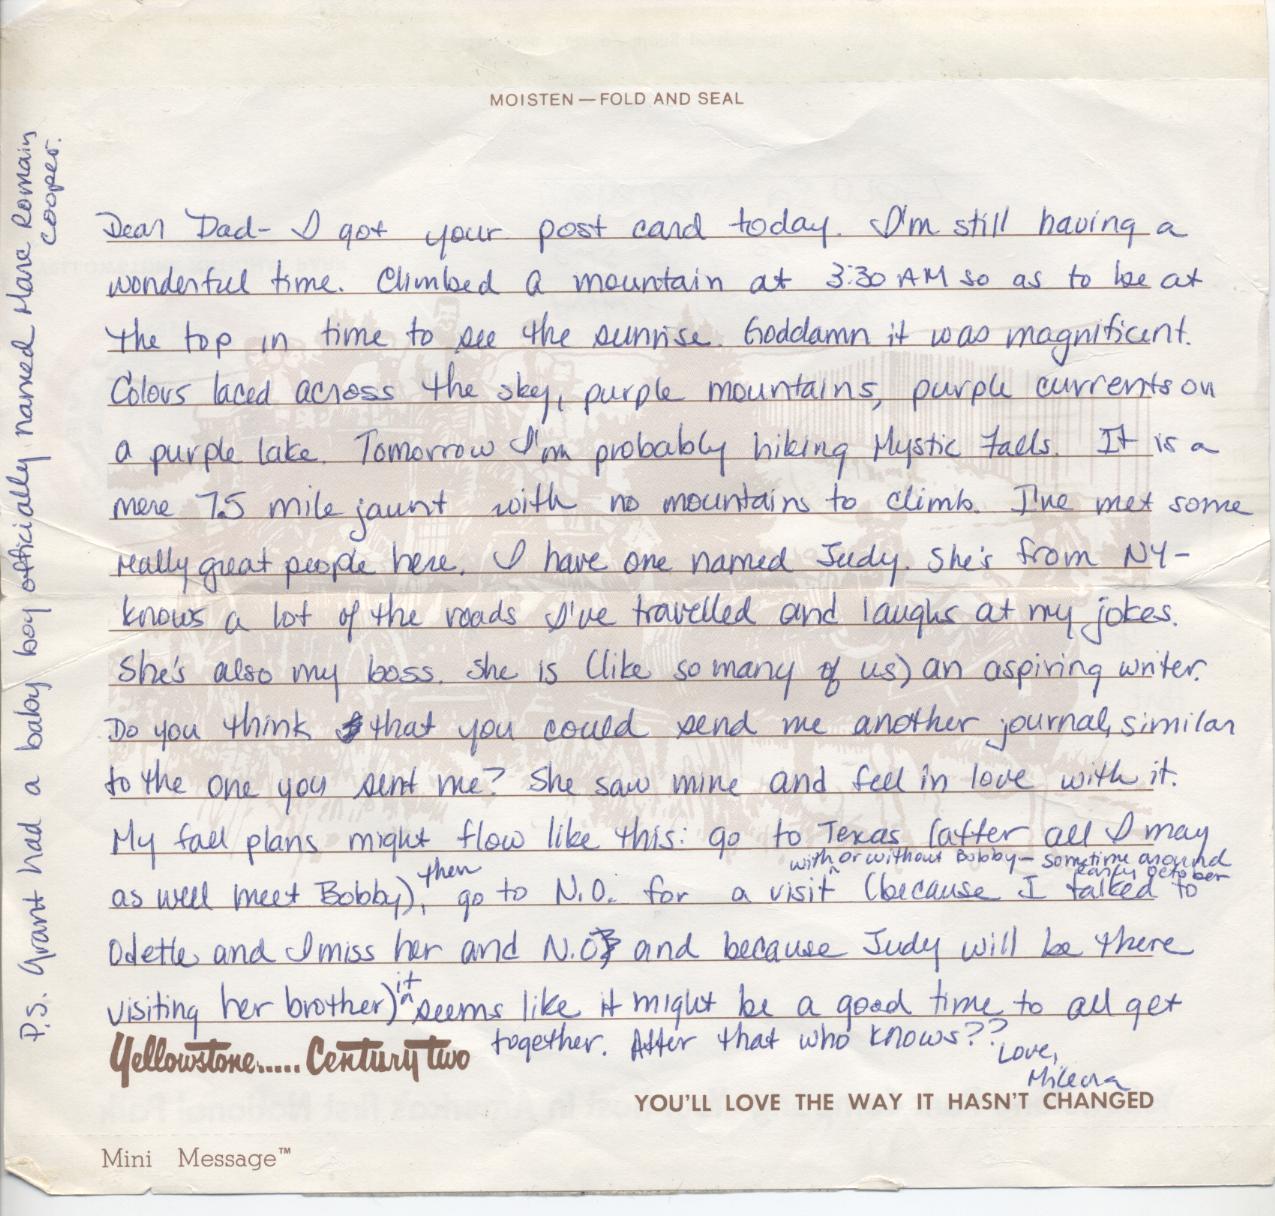 MOISTEN — FOLD AND SEAL
Dear Dad- I got your post card today. I'm still having a
wonderful time. Climbed a mountain at 3:30 AM so as to be at
the top in time to see the sunrise. Goddamn it was magnificent.
Colors laced across the sky, purple mountains, purple currents on
a purple lake. Tomorrow I'm probably hiking Mystic Falls. It is a
mere 7.5 mile jaunt with no mountains to climb. I've met some
really great people here. I have one named Judy. She's from NY-
knows a lot of the roads I've travelled and laughs at my jokes.
She's also my boss. She is (like so many of us) an aspiring writer.
Do you think that you could send me another journal, similar
to the one you sent me? She saw mine and fell in love with it.
My fall plans might flow like this: go to Texas (after all I may
with or without Bobby - sometime around
early October
as well meet Bobby), then go to N.O. for a visit (because I talked to
Odette and I miss her and N.O. and because Judy will be there
visiting her brother) it seems like it might be a good time to all get
together. After that who knows??
Love,
Yellowstone..... Century two
YOU'LL LOVE THE WAY IT HASN'T CHANGED
Mini Message™
P.S. Grant had a baby boy officially named Romain
Cooper.